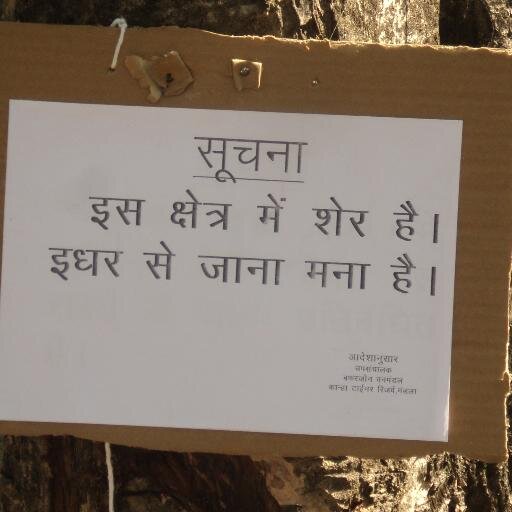 सूचना
इस क्षेत्र में शेर है।
इधर से जाना मना है।
आदेशानुसार
उपसंचालक
बफरजोन वनमंडल
कान्हा टाईगर रिजर्व,मंडला